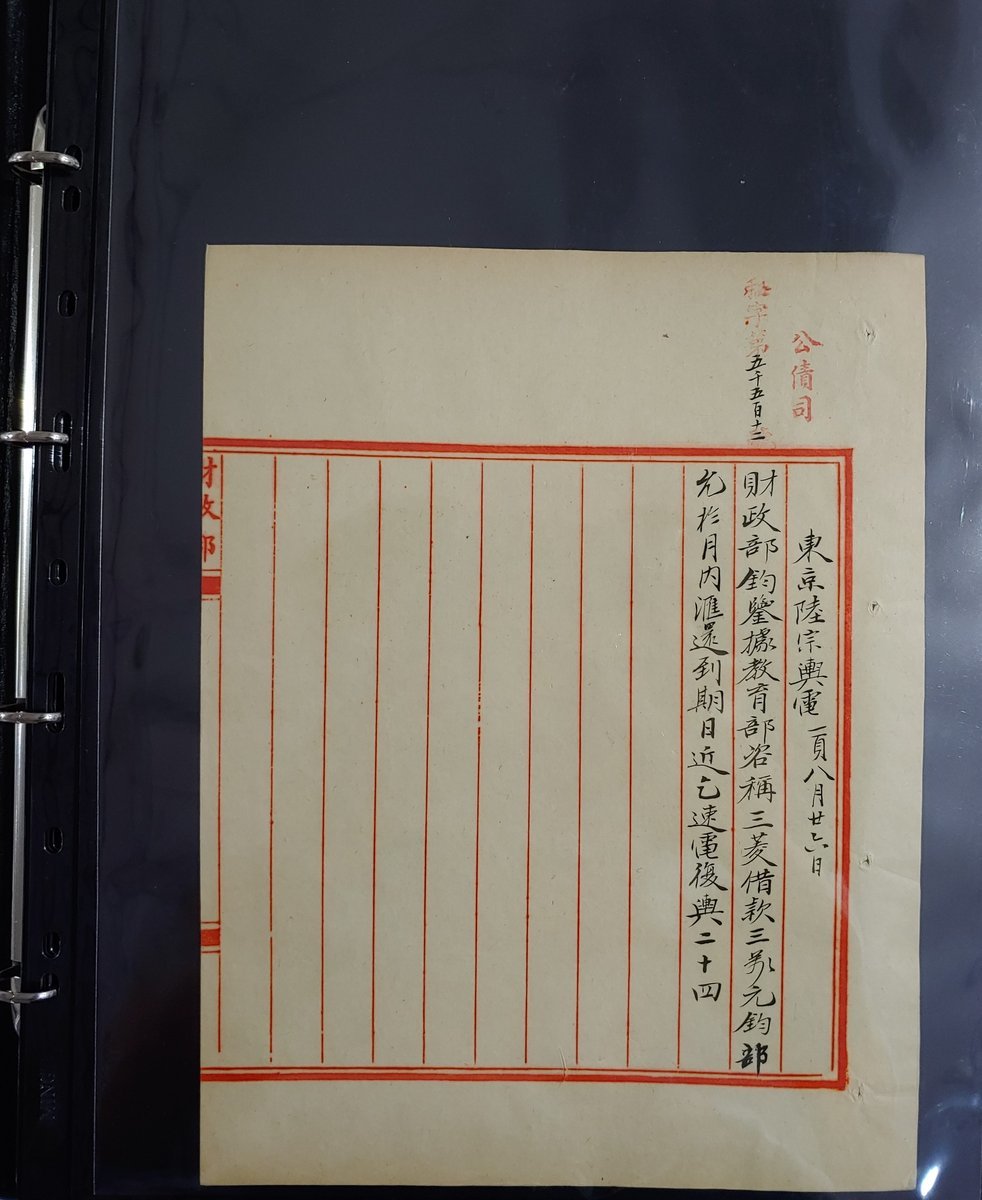 公債司
秘字第五千五百十二號
東京陸宗輿電 一頁 八月廿六日
財政部鈞鑒據教育部咨稱三菱借款三萬元鈞部
允於月内滙還到期日近乞速電復輿二十四
財政部